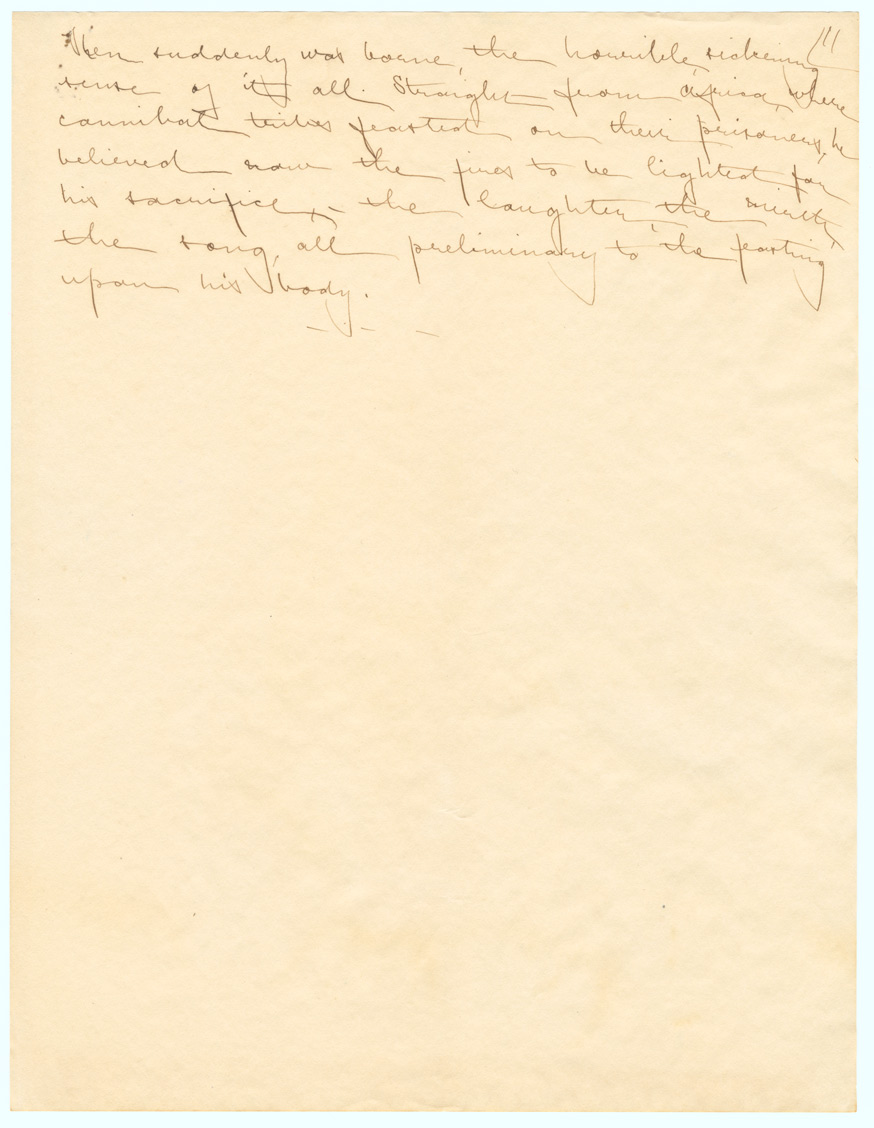 Then suddenly was borne, the horrible, sickening
sense of it all. Straight from Africa, where
cannibal tribes feasted on their prisoners, he
believed saw the fires to be lighted for
his sacrifice, – the laughter, the mirth,
the song, all preliminary to the feasting
upon his body.